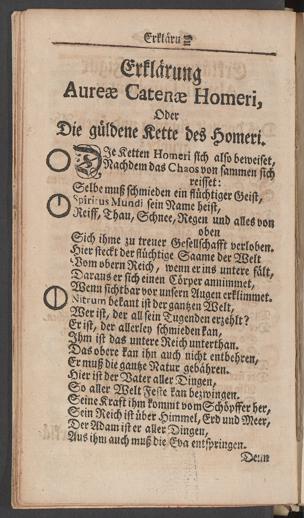 Erklärung
Erklärung
Aureæ Catenæ Homeri,
Oder
Die güldene Kette des Homeri.
Je Ketten Homeri sich also beweiset,
Nachdem das Chaos von sammen sich
reisset:
Selbe muß schmieden ein flüchtiger Geist,
Spiritus Mundi sein Name heist,
Reiff, Thau, Schnee, Regen und alles von
oben
Sich ihme zu treuer Gesellschafft verloben.
Hier steckt der flüchtige Saame der Welt
Vom obern Reich, wenn er ins untere fält,
Daraus er sich einen Cörper annimmet,
Wenn sichtbar vor unsern Augen erklimmet.
Nitrum bekant ist der gantzen Welt,
Wer ist, der all sein Tugenden erzehlt?
Er ist, der allerley schmieden kan,
Ihm ist das untere Reich unterthan.
Das obere kan ihn auch nicht entbehren,
Er muß die gantze Natur gebähren.
Hier ist der Vater aller Dingen,
So aller Welt Feste kan bezwingen.
Seine Kraft ihm kommt vom Schöpffer her,
Sein Reich ist über Himmel, Erd und Meer,
Der Adam ist er aller Dingen,
Aus ihm auch muß die Eva entspringen.
Denn